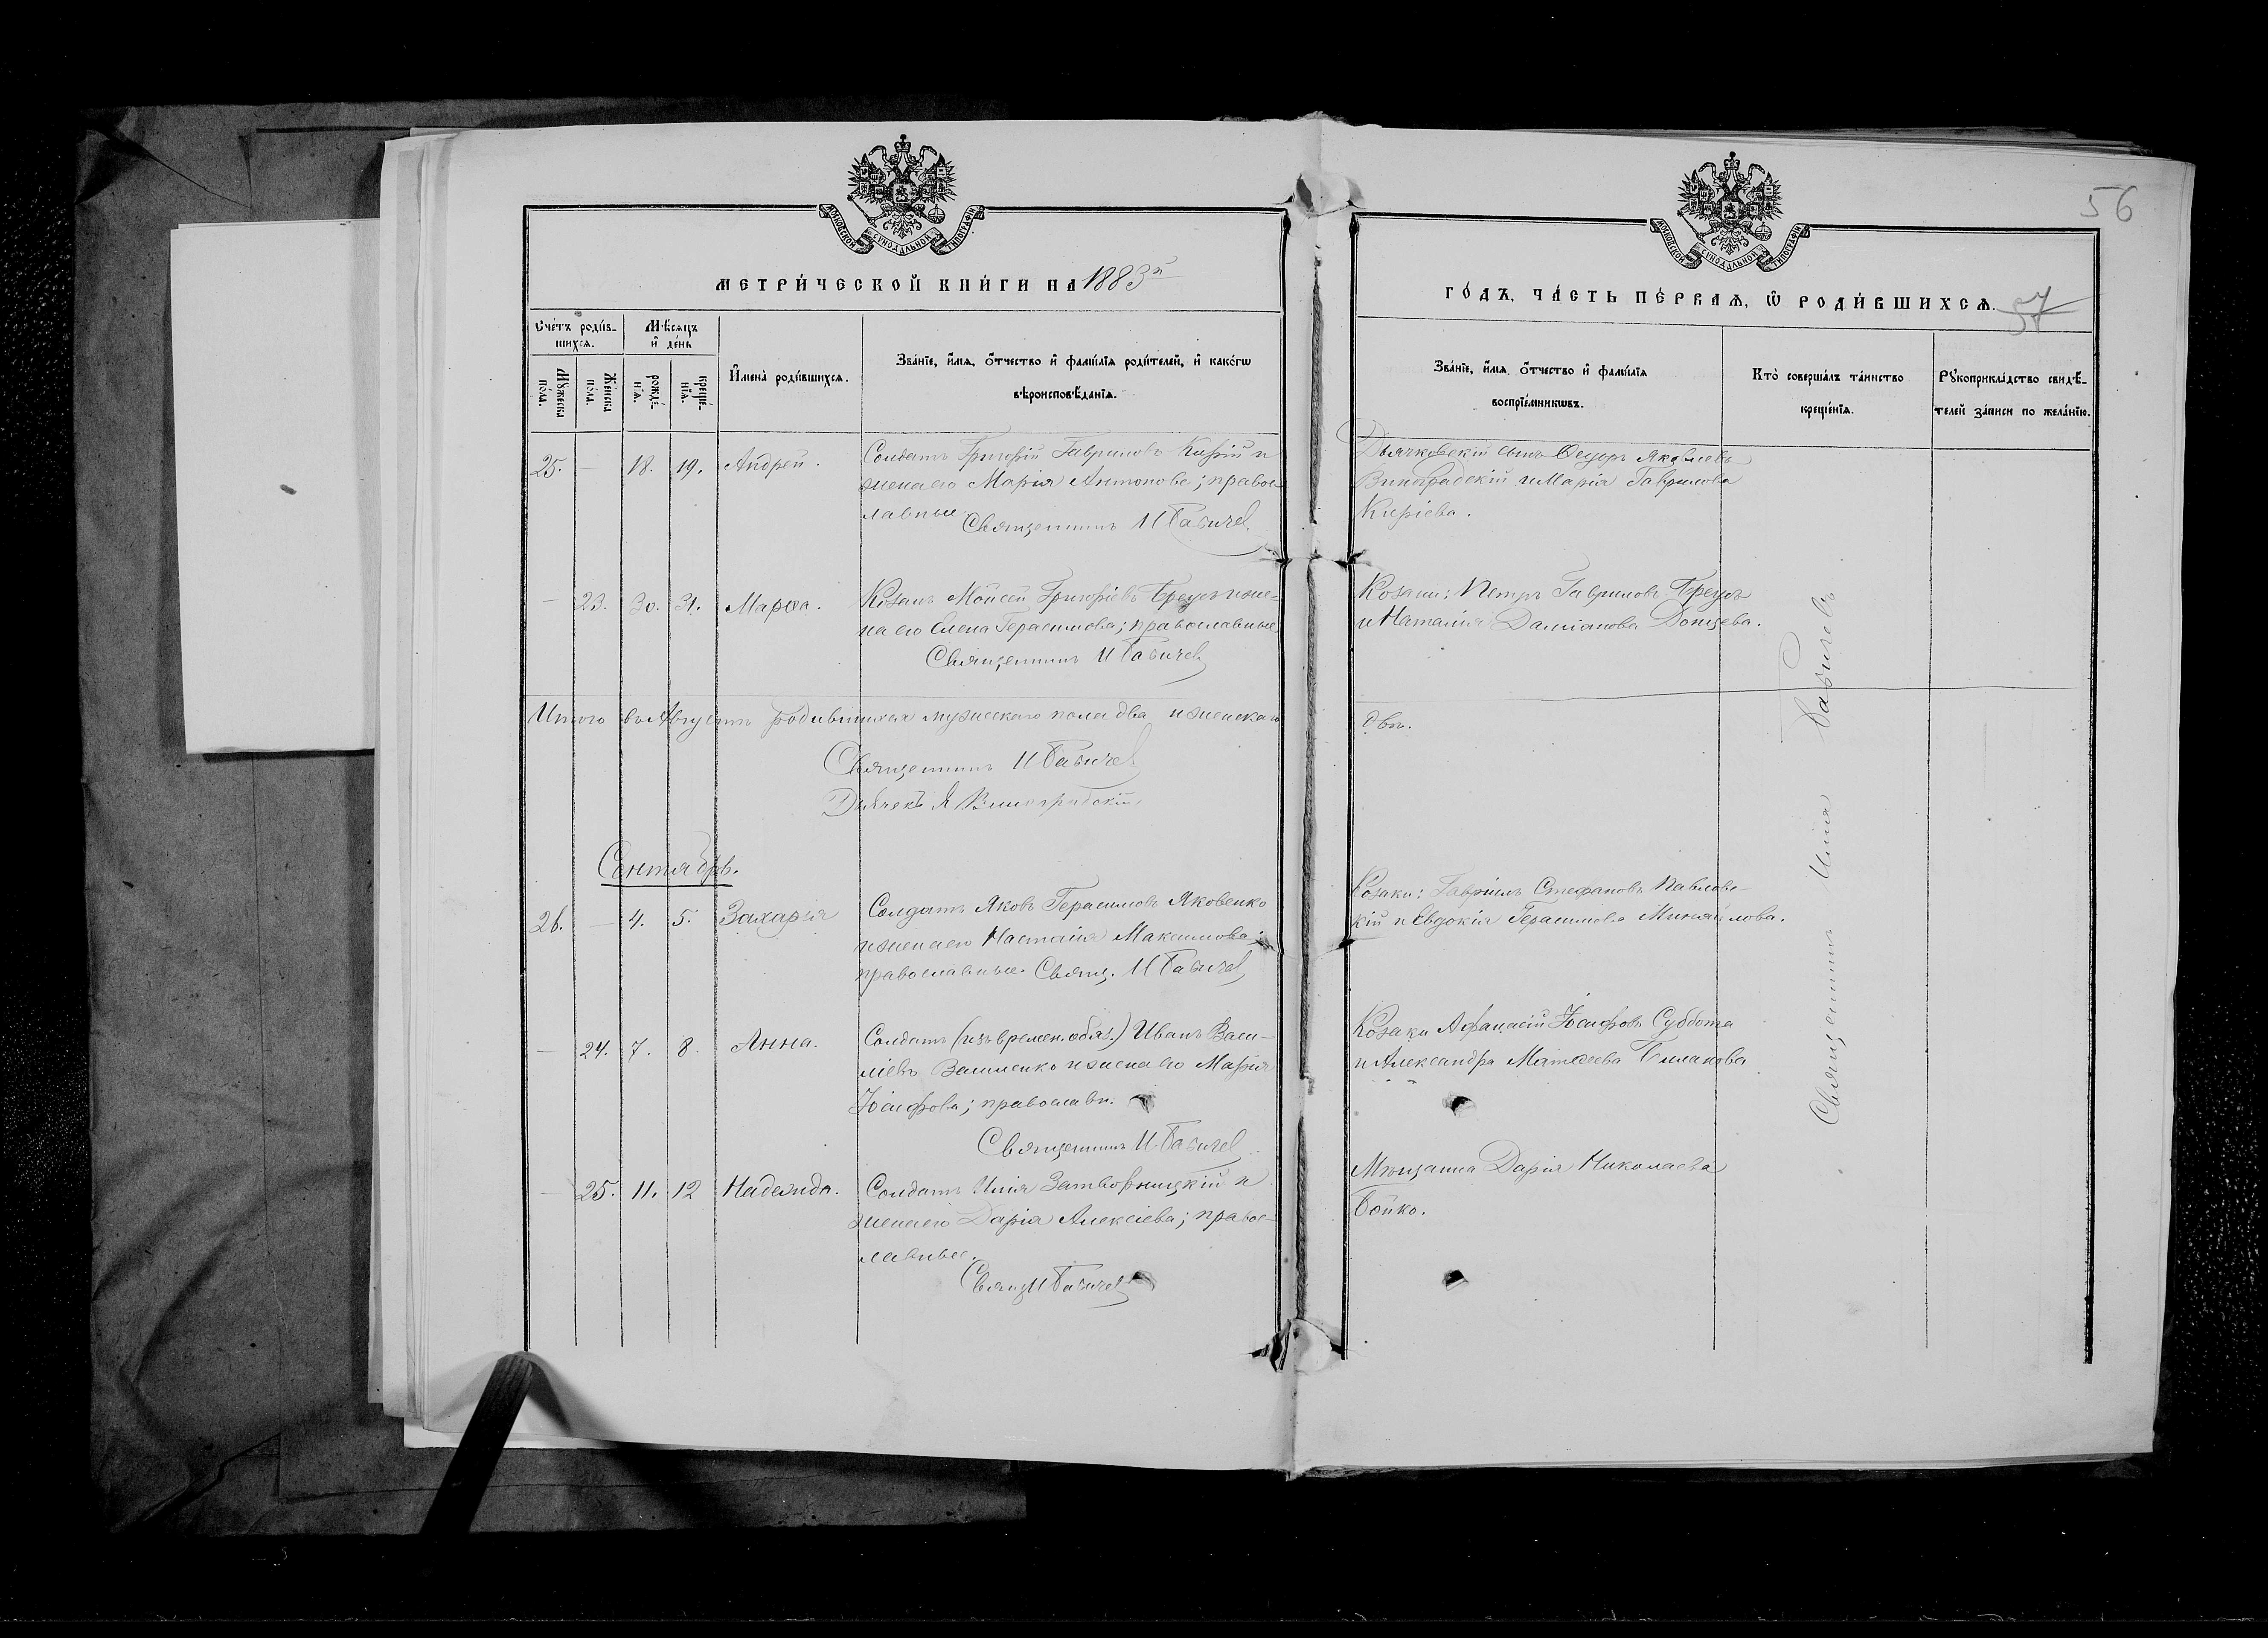 56
МОСКОВСКОЙ СѴНОДАЛЬНОЙ ТИПОГРАФІИ
МОСКОВСКОЙ СѴНОДАЛЬНОЙ ТИПОГРАФІИ
МЕТРИ́ЧЕСКОЙ КНИ́ГИ НА 1883й
ГО́ДЪ, ЧА́СТЬ ПЕ́РВАѦ, Ѿ РОДИ́ВШИХСѦ.
57
Счётъ роди́в-
шихсѧ.
Мѣсѧцъ
и҆ де́нь
И҆мена̀ роди́вшихсѧ.
Зва́нїе, и҆́мѧ, о҆́тчество и҆ фами́лїѧ роди́телей, и҆ како́гѡ
вѣроисповѣ́данїѧ.
Мꙋ́жеска
по́ла.
Же́нска
по́ла.
рожде́-
нїѧ.
креще́-
нїѧ.
Зва́нїе, и҆́мѧ, о҆́тчество и҆ фами́лїѧ
воспрїе́мникѡвъ.
Кто̀ соверша́лъ та́инство
креще́нїѧ.
Рꙋкоприкла́дство свидѣ́-
телей за́писи по жела́нїю.
25. — 18. 19. Андрей. Солдатъ Григорій Гавриловъ Кирій и
жена его Марія Антонова; правос-
лавные
Священникъ И Бабичев
Дьячковскій сынъ Ѳедоръ Яковлевъ
Виноградскій и Марія Гаврилова
Киріева.
— 23. 30. 31. Марѳа. Козакъ Моисей Григоріевъ Брецъ и же-
на его Елена Герасимова; православные
Священникъ И Бабичев
Козаки: Петръ Гавриловъ Брецъ
и Наталія Даміанова Донцева.
Итого въ Августѣ родившихся мужескаго пола два и женскаго
двѣ.
Священникъ И Бабичев
Дьячекъ Я Виноградскій
Сентябрь.
26. — 4. 5. Захарія Солдатъ Яковъ Герасимовъ Яковенко
и жена его Наталія Максимова;
православные. Свящ. И Бабичев
Козаки: Гавріилъ Стефановъ Павловс-
кій и Евдокія Герасимова Миняйлова.
— 24. 7. 8. Анна. Солдатъ (изъ времен. обяз.) Иванъ Васи-
ліевъ Василенко и жена его Марія
Іосифова; православн.
Священникъ И. Бабичев
Козаки Афанасій Іосифовъ Суббота
и Александра Матѳеева Билакова
— 25. 11. 12 Надежда. Солдатъ Илія Затворницкій и
жена его Дарія Алексіева; правос-
лавные.
Свящ И Бабичев
Мѣщанка Дарія Николаева
Бойко.
Священникъ Илія Бабичевъ